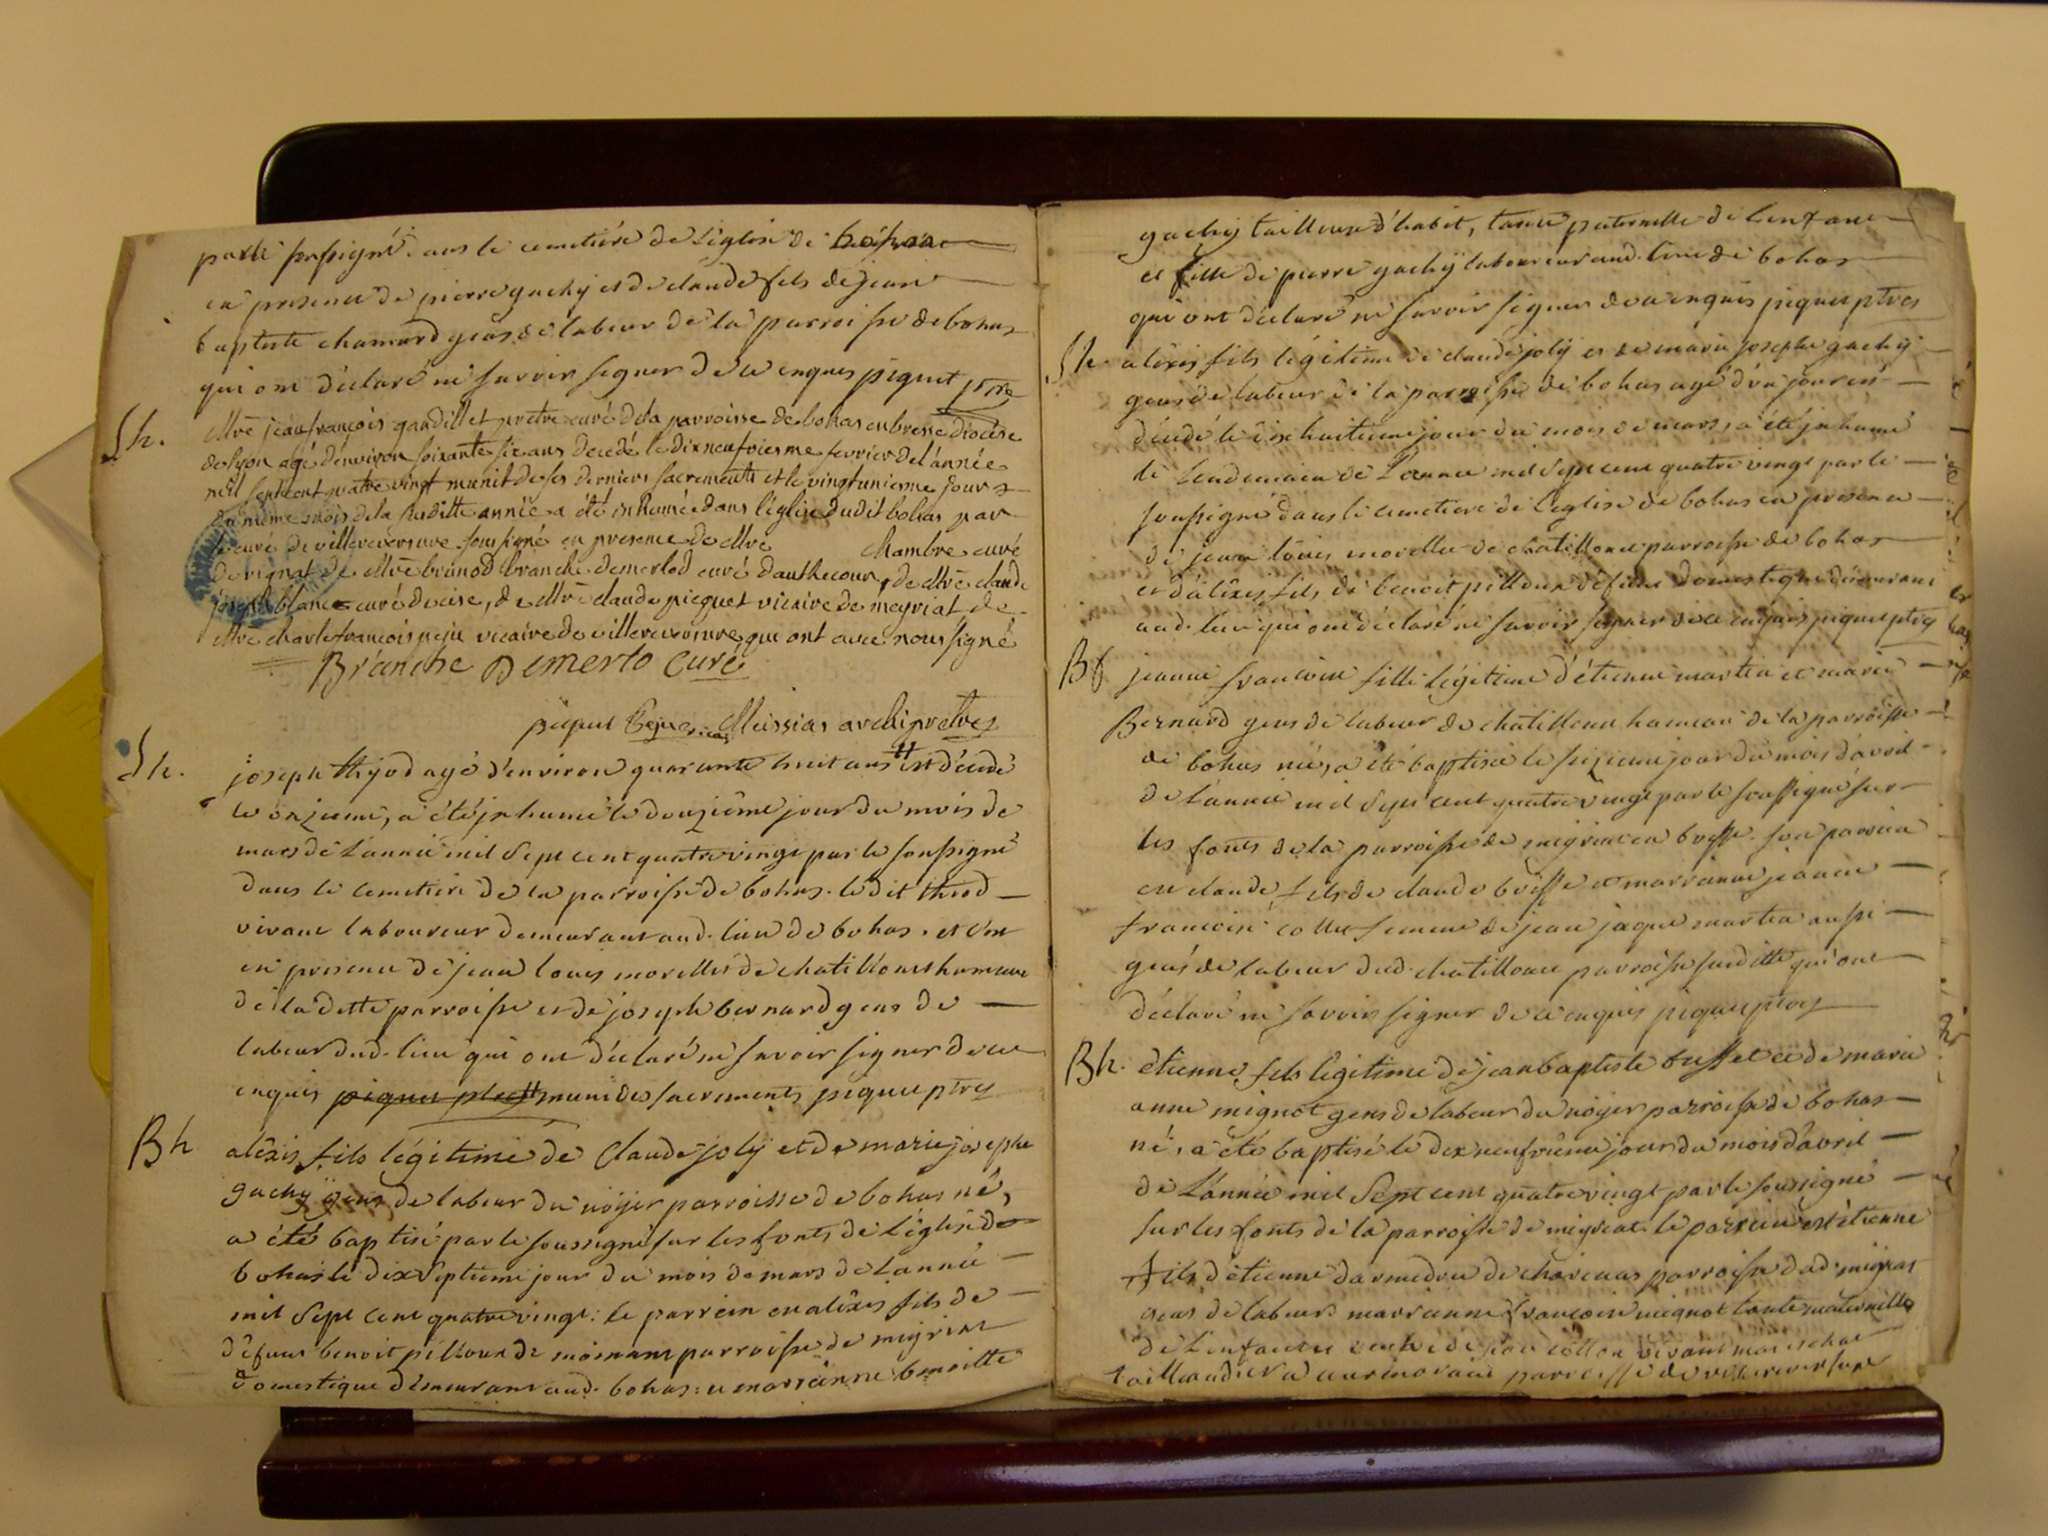 par le sousigné dans le cemetiére de l'église de bohas
en presence de pierre gachÿ et de claude fils de jean
baptiste chamard gens de labeur de la parroisse de bohas
qui ont déclaré ne savoir signer de ce enquis piquet ptre
Sh. Mre jean francois gaudillet pretre curé de la parroisse de bohas en bresse diocése
de lyon agé d'environ soixante six ans decedé le dixneufviesme fevrier de l'année
mil sept cent quatre vingt munit de ses derniers sacrements et le vingtuniesme jour
du méme mois de la susditte année a été inhumée dans l'église dudit bohas par
le curé de villereversure soussigné en presence de Mre chambre curé
de rignat de Mre brunod branche demerlod curé d'authecour, de Mre claude
joseph blanc curé de cise, de Mre claude picquet vicaire de meyriat de
Mre charle francois peju vicaire de villereversure qui ont avec nous signé
Branche Demerlo Curé
piquet Peju vic. Messias archiprétre
Sh. joseph thÿod agé d'environ quarante huit ans est décédé
le onzieme, a été jnhumé le douziéme jour du mois de
mars de l'année mil sept cent quatre vingt par le sousigné
dans le cemetiére de la parroisse de bohas. ledit thiod
vivant laboureur demeurant aud. lieu de bohas. et c'est
en presence de jean louis morellet de chatillonet hameau
de la ditte parroisse et de joseph bernard gens de
labeur dud. lieu qui ont déclaré ne savoir signer de ce
enquis piquet ptre munides sacrements piquet ptre
Bh aléxis fils légitime de Claude jolÿ et de marie josephe
gachÿ gens de labeur du nöyer parroisse de bohas né,
a été baptisé par le soussigné sur les fonts de l'église de
bohas le dix septieme jour du mois de mars de l'année
mil sept cent quatre vingt: le parrein est aléxis fils de
défunt benoit pilloux de moinant parroisse de migriat
domestique demeurant aud. bohas: la marrainne benoitte
gachÿ tailleuse d'habit, tante paternelle de l'enfant
et fille de pierre gachÿ laboureur aud. lieu de bohas
qui ont déclaré ne savoir signer de ce enquis piquet ptre
Sh aléxis fils légitime de claude jolÿ et de marie josephe gachÿ
gens de labeur de la parroisse de bohas agé d'un jour est
décédé le dix huitieme jour du mois de mars, a été jnhumé
le lendemain de l'année mil sept cent quatre vingt par le
sousigné dans le cemetiere de l'église de bohas en presence
de jean louis morellet de chatillonet parroisse de bohas
et d'aléxis fils de benoit pilloux défunt domestique demeurant
aud. lieu qui ont déclaré ne savoir signer de ce enquis piquet ptre
Bf jeanne francoise fille légitime d'étienne martin et marie
Bernard gens de labeur de chatillonet hameau de la parroisse
de bohas née, a été baptisée le seizieme jour du mois d'avril
de l'année mil sept cent quatre vingt par le soussigné sur
les fonts de la parroisse de migriat en bresse. son parrein
est claude, fils de claude bresse et marrainne jeanne
francoise collet femme de jean jaque martin aussi
gens de labeur dud. chatillonet parroisse susditte qui ont
déclaré ne savoir signer de ce enquis piquet ptre
Bh. étienne fils légitime de jean baptiste buffet et de marie
anne mignot gens de labeur du nöyer parroisse de bohas
né, a été baptisé le dix neufvième jour du mois d'avril
de l'année mil sept cent quatre vingt par le soussigné
sur les fonts de la parroisse de migriat. le parrein est étienne
fils d'étienne darmedru de charinas parroisse dud. migriat
gens de labeur marrainne francoise mignot tante maternelle
de l'enfant et veuve de jean collon vivant marechal
taillandier a parroisse de villereversure